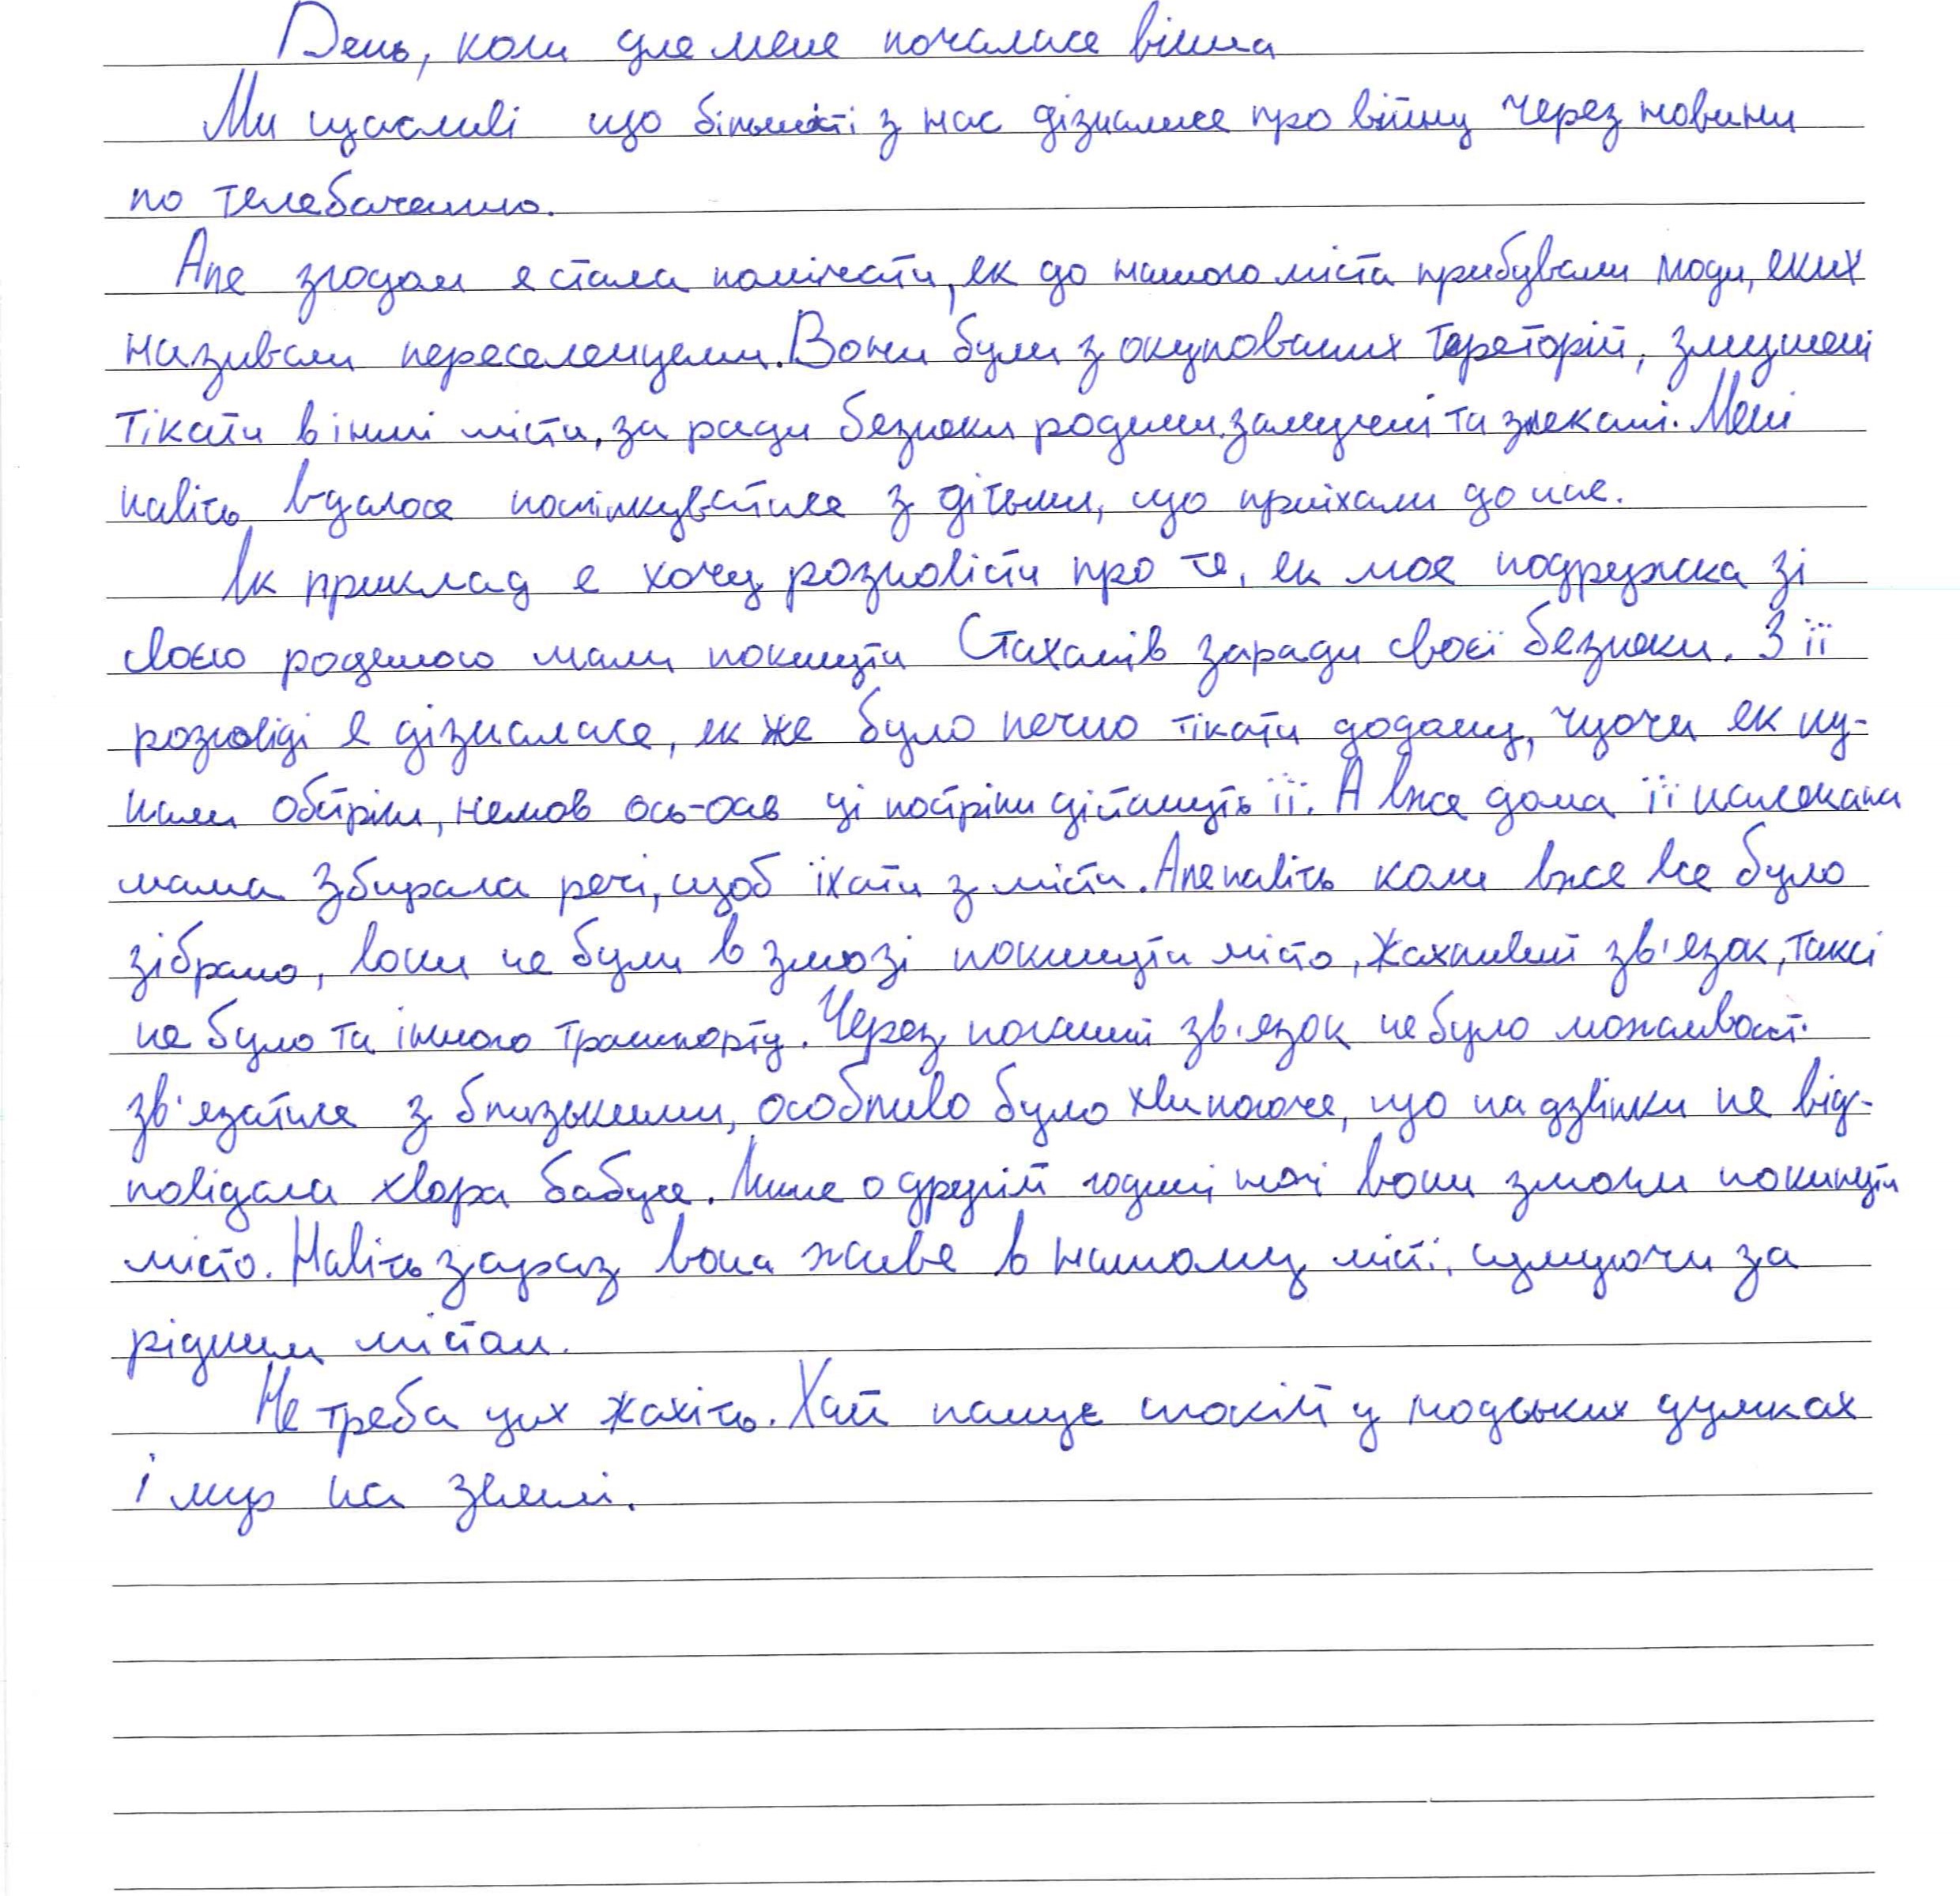 День, коли для мене почалася війна
Ми щасливі що більшість з нас дізналися про війну через новини
по телебаченню.
Але згодом я стала помічати, як до нашого міста прибували люди, яких
називали переселенцями. Вони були з окупованих тереторій, змушені
тікати в інші міста, за ради безпеки родини, замучені та злякані. Мені
навіть вдалося поспілкуватися з дітьми, що приїхали до нас.
Як приклад я хочу розповісти про те, як моя подружка зі
своєю родиною мали покинути Стаханів заради своєї безпеки. З її
розповіді я дізналася, як же було лячно тікати додому, чуючи як лу-
нали обстріли, немов ось-ось ці постріли дістануть її. А вже дома її налякана
мама збирала речі, щоб їхати з міста. Але навіть коли вже все було
зібрано, вони не були в змозі покинути місто, жахливий зв'язок, таксі
не було та іншого транспорту. Через поганий зв'язок не було можливості
зв'язатися з близькими, особливо було хвилююче, що на дзвінки не від-
повідала хвора бабуся. Лише о другій годині ночі вони змогли покинути
місто. Навіть зараз вона живе в нашому місті, сумуючи за
рідним містом.
Не треба цих жахіть. Хай панує спокій у людських думках
і мир на землі.